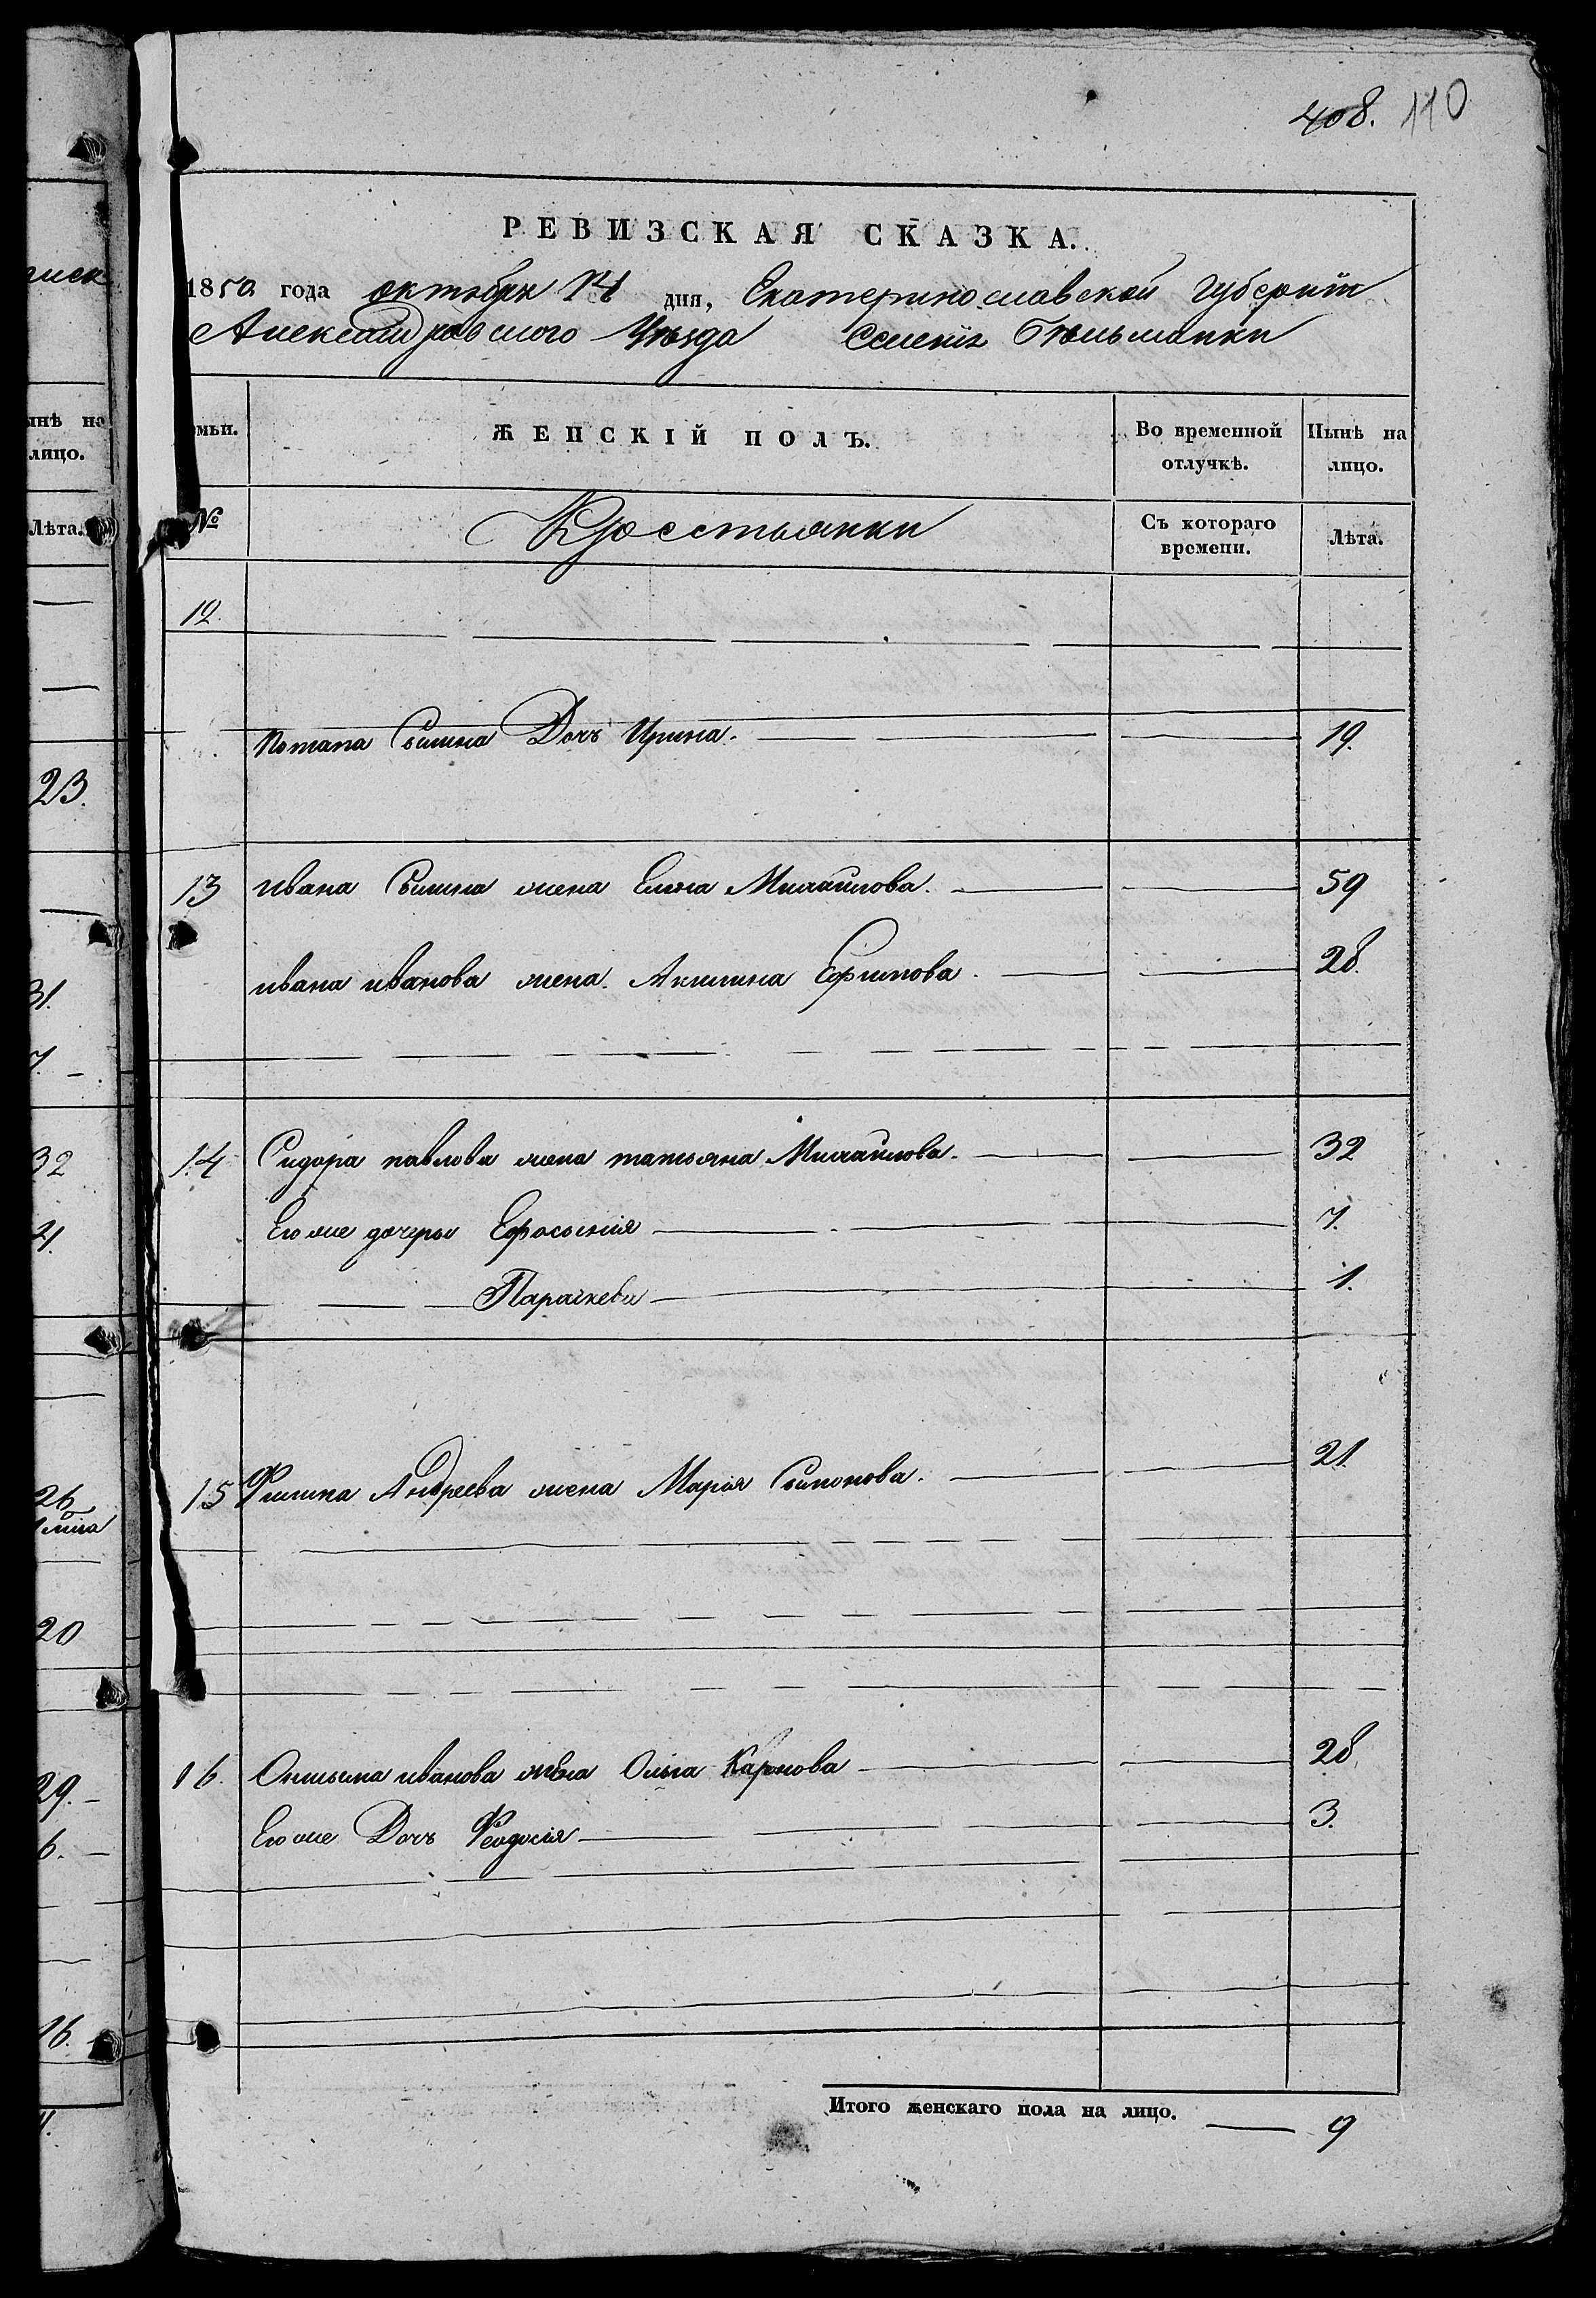 408. 110
РЕВИЗСКАЯ СКАЗКА.
1850 года октября 14 дня, Екатеринославской Губерніи
Александровского Уѣзда Селенія Гельмапки
мьи. ЖЕНСКІЙ ПОЛЪ. Во временной отлучкѣ. Нынѣ на лицо.
№ Крестьянки Съ котораго времени. Лѣта.
12.
Потапа Дочь Ирина. 19.
13 ивана жена Елена Михаилова. 59
ивана иванова жена. Акилина Ефимова. 28.
14 Сидора павлова жена татьяна Михаилова. 32
Его же дочери Ефросинія 7.
Параскева 1.
15 Филипа Андреева жена Марія Симонова. 21.
16. иванова жена Ольга Карпова 28
Его же Дочь Феодосія 3.
Итого женскаго пола на лицо. 9
нѣ на
лицо.
Лѣта.
23.
31.
7.
32
26
20
29.
6.
16.